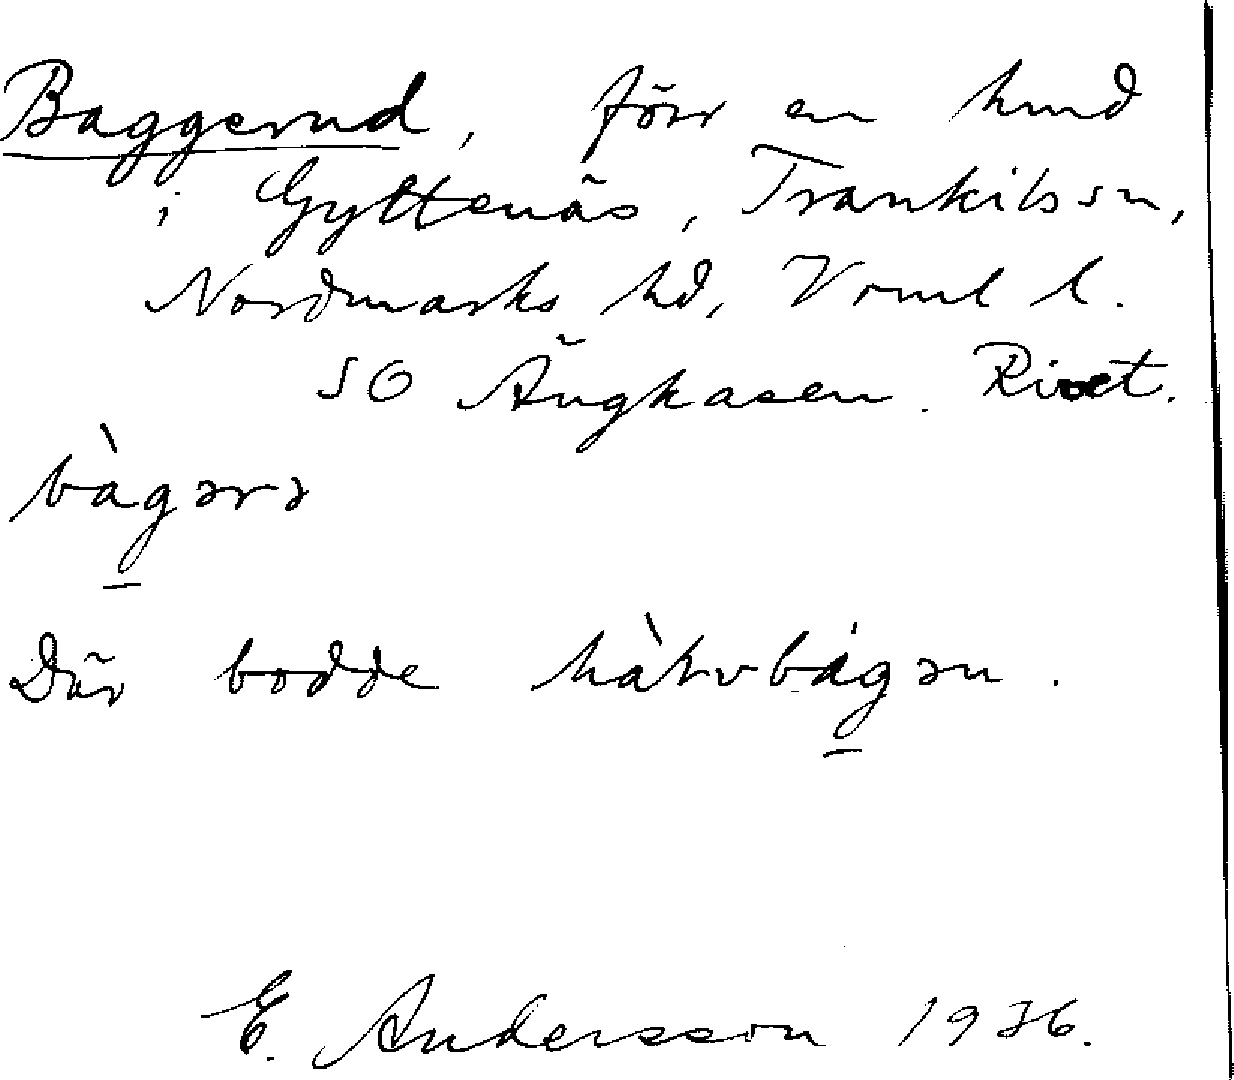 Baggerud, förr en hmd
i Gyttenäs, Trankils sn,
Nordmarks hd, Vrml l.
SO Ängkasen. Rivet.
bàgərə
Där bodde bágən.
E. Andersson 1936.